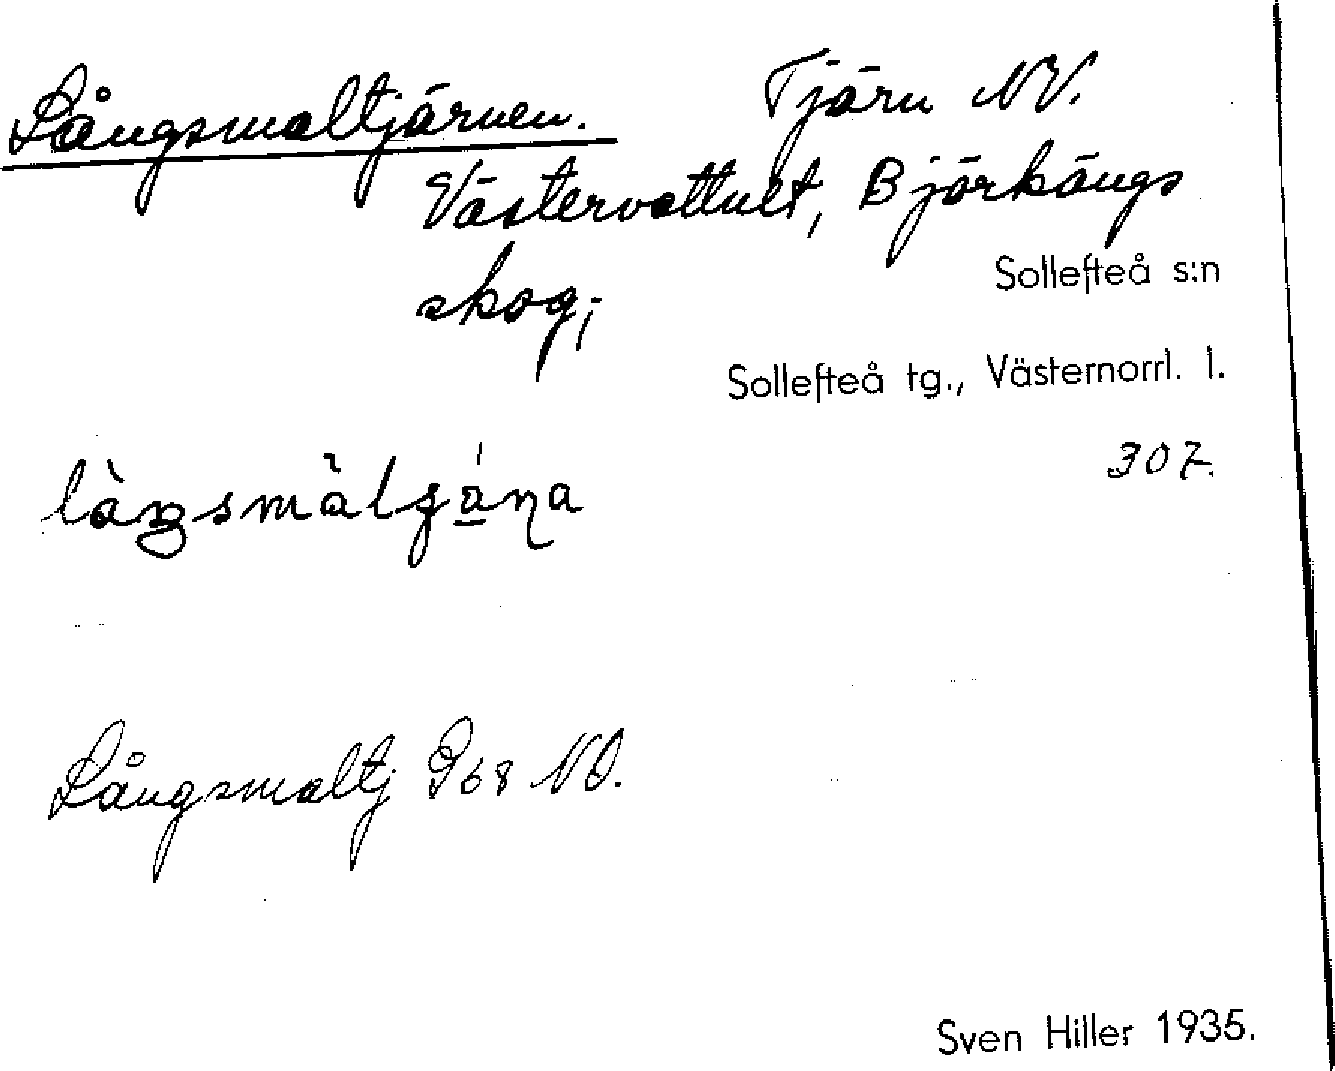 Långsmaltjärnen. Tjärn NV.
Västervattnet, Björkängs
skog;
Sollefteå s:n
Sollefteå tg., Västernorrl. l.
307.
Långsmaltj 968 NO.
Sven Hiller 1935.